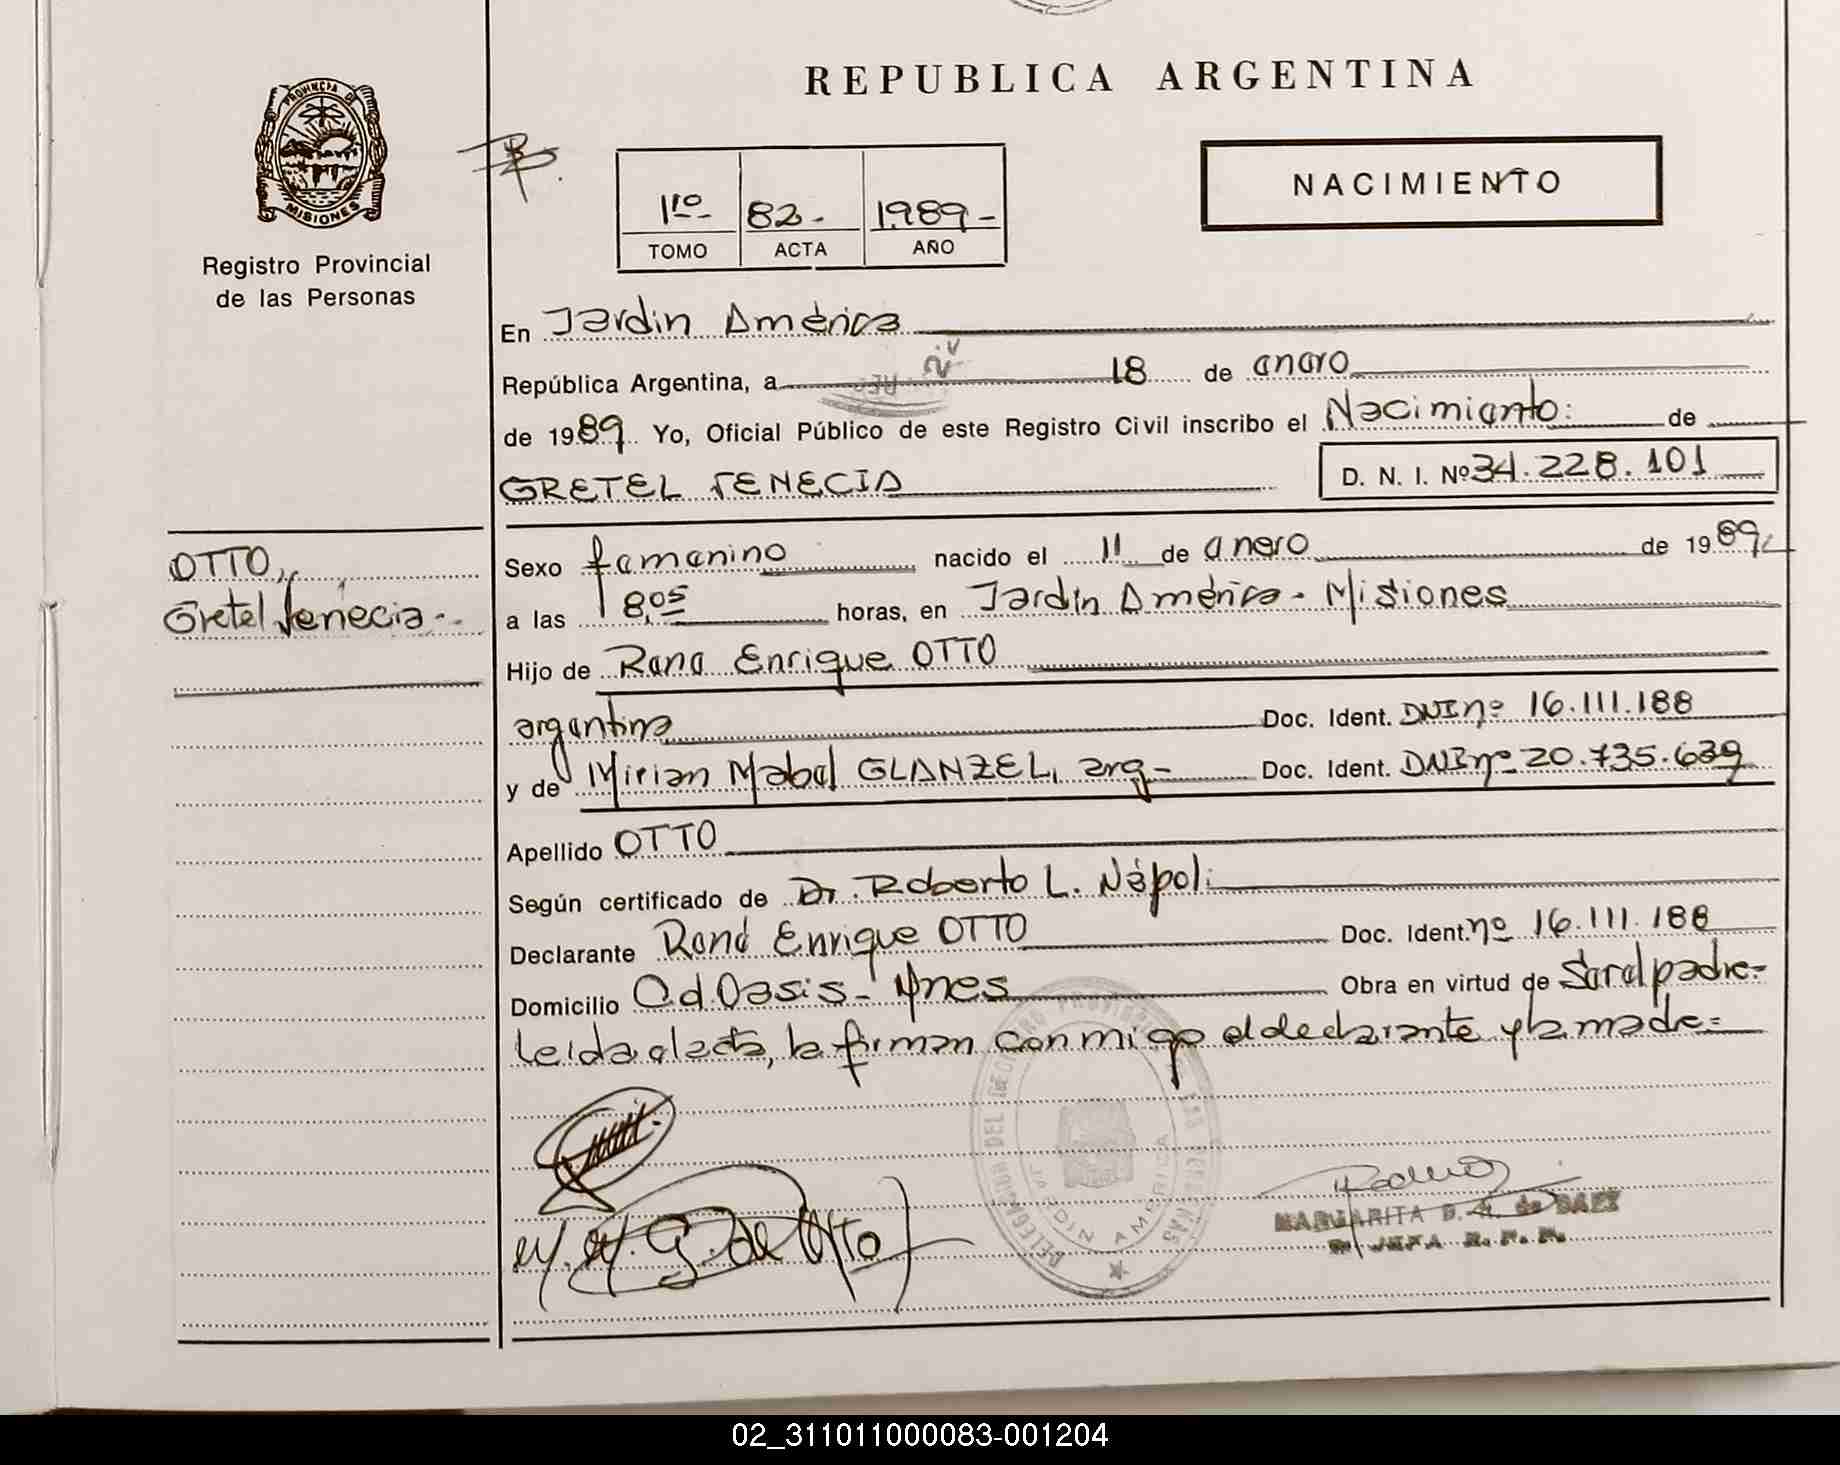 REPUBLICA ARGENTINA
PROVINCIA DE
MISIONES
Registro Provincial
de las Personas
1ro 82- 1989-
TOMO ACTA AÑO
NACIMIENTO
En Jardin América
República Argentina, a 18 de enero
de 1989 Yo, Oficial Público de este Registro Civil inscribo el Nacimiento: de
GRETEL JENECIA D. N. I. Nº 34.228.101
OTTO,
Gretel Jenecia--
Sexo femenino nacido el 11 de enero de 1989
a las 18,05 horas, en Jardin América - Misiones
Hijo de Rene Enrique OTTO
argentina Doc. Ident. DNI nº 16.111.188
y de Mirian Mabel GLANZEL, arg- Doc. Ident. DNI nº 20.735.639
Apellido OTTO
Según certificado de Dr. Roberto L. Nápoli
Declarante René Enrique OTTO Doc. Ident. nº 16.111.188
Domicilio Cd. Oasis - Mnes Obra en virtud de Ser el padre=
Leida el acta, la firman conmigo el declarante y la madre=
DELEGACION DEL REGISTRO PROVINCIAL DE LAS PERSONAS
JARDIN AMERICA
M. M. G. de Otto
MARGARITA de BAEZ
JEFA R. P. P.
02_311011000083-001204